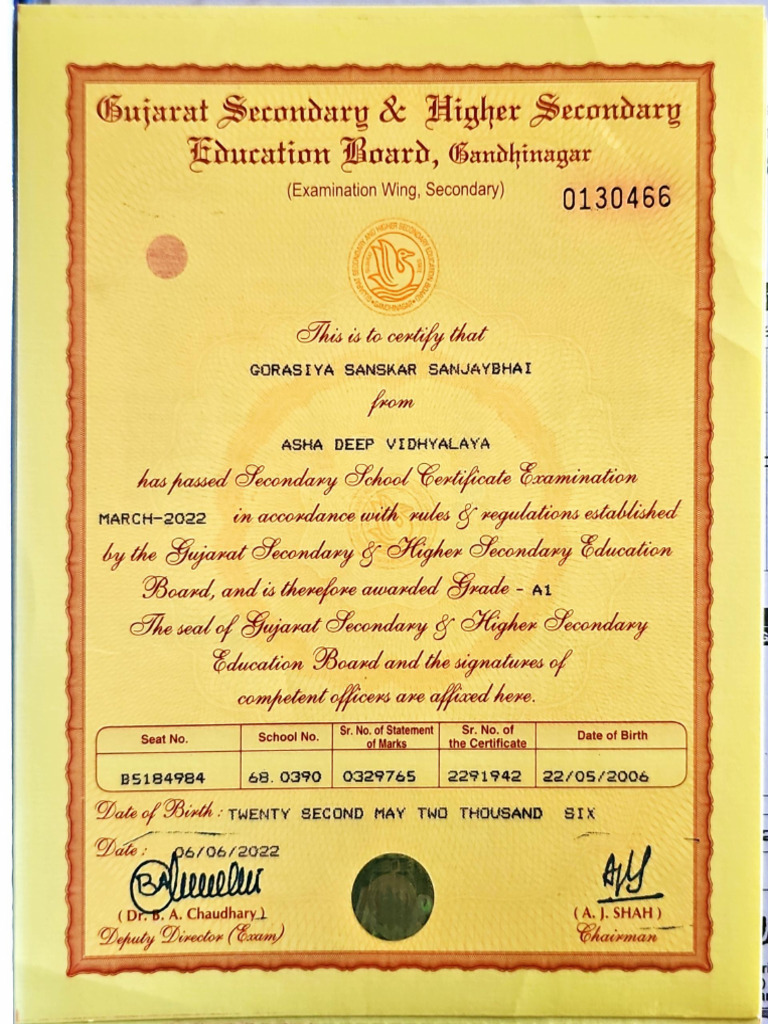 Gujarat Secondary & Higher Secondary
Education Board, Gandhinagar
(Examination Wing, Secondary)
0130466
This is to certify that
GORASIYA SANSKAR SANJAYBHAI
from
ASHA DEEP VIDHYALAYA
has passed Secondary School Certificate Examination
MARCH-2022 in accordance with rules & regulations established
by the Gujarat Secondary & Higher Secondary Education
Board, and is therefore awarded Grade - A1
The seal of Gujarat Secondary & Higher Secondary
Education Board and the signatures of
competent officers are affixed here.
Seat No. School No. Sr. No. of Statement of Marks Sr. No. of the Certificate Date of Birth
B5184984 68.0390 0329765 2291942 22/05/2006
Date of Birth : TWENTY SECOND MAY TWO THOUSAND SIX
Date : 06/06/2022
(Dr. B. A. Chaudhary) (A. J. SHAH)
Deputy Director (Exam) Chairman